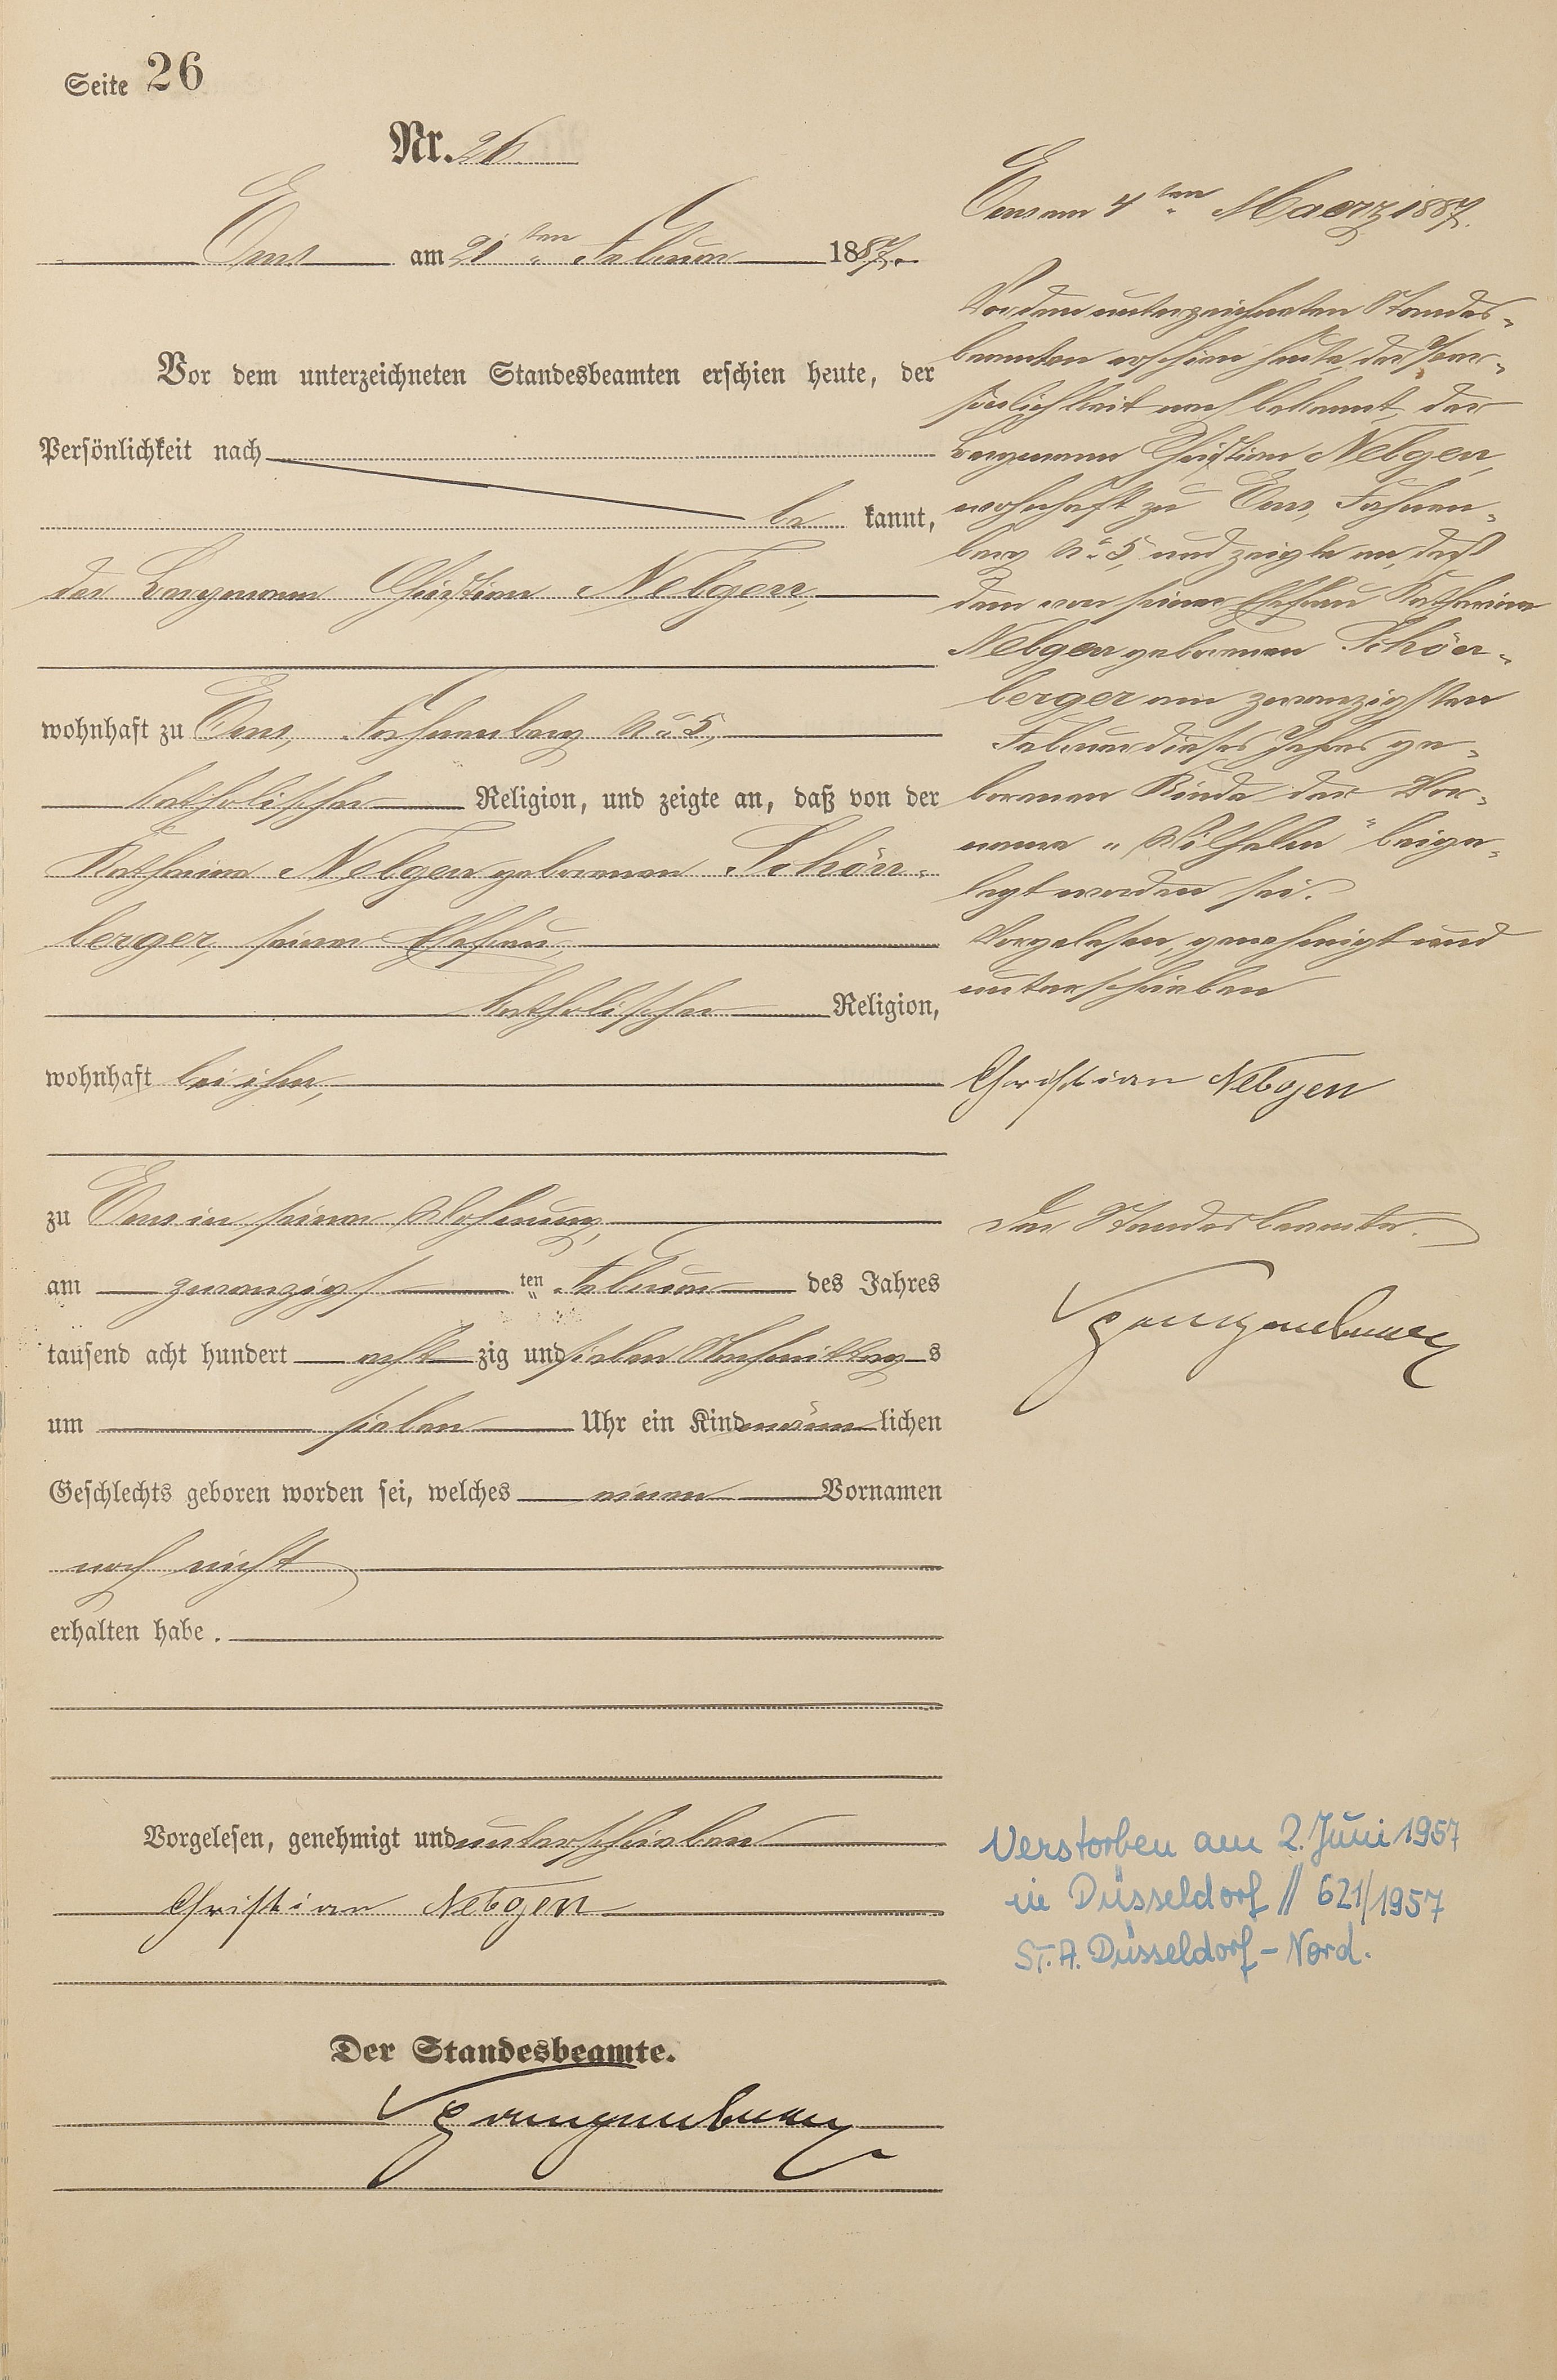 Seite 26
Nr. 26
Ems am 21ten Februar 1887.
Vor dem unterzeichneten Standesbeamten erschien heute, der
Persönlichkeit nach
be kannt,
der Bergmann Christian Nebgen,
wohnhaft zu Ems, Fahnenberg No 5,
katholischer Religion, und zeigte an, daß von der
Katharina Nebgen geborenen Schön-
berger, seiner Ehefrau,
katholischer Religion,
wohnhaft bei ihm,
zu Ems in seiner Wohnung,
am zwanzigsten Februar des Jahres
tausend acht hundert acht zig und sieben Nachmittags
um sieben Uhr ein Kind männlichen
Geschlechts geboren worden sei, welches einen Vornamen
noch nicht
erhalten habe.
Vorgelesen, genehmigt und unterschrieben
Christian Nebgen
Der Standesbeamte.
Ems am 4ten Maerz 1887.
Vor dem unterzeichneten Standes-
beamten erschien heute, der Per-
sönlichkeit nach bekannt, der
Bergmann Christian Nebgen,
wohnhaft zu Ems, Fahnen-
berg No 5, und zeigte an, daß
dem von seiner Ehefrau Katharina
Nebgen geborenen Schön-
berger am zwanzigsten
Februar dieses Jahres ge-
borenen Kinde der Vor-
name "Wilhelm" beige-
legt worden sei.
Vorgelesen, genehmigt und
unterschrieben
Christian Nebgen
Der Standesbeamte.
Verstorben am 2. Juni 1957
in Düsseldorf // 621/1957
ST. A. Düsseldorf-Nord.